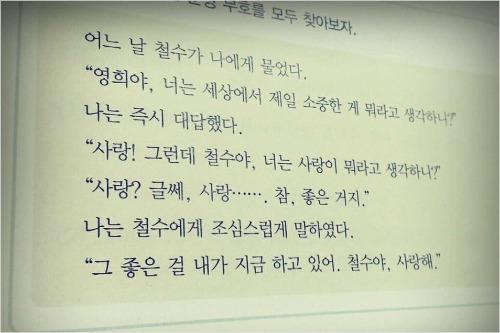 부호를 모두 찾아보자.
어느 날 철수가 나에게 물었다.
“영희야, 너는 세상에서 제일 소중한 게 뭐라고 생각하니?”
나는 즉시 대답했다.
“사랑! 그런데 철수야, 너는 사랑이 뭐라고 생각하니?”
“사랑? 글쎄, 사랑……. 참, 좋은 거지.”
나는 철수에게 조심스럽게 말하였다.
“그 좋은 걸 내가 지금 하고 있어. 철수야, 사랑해.”